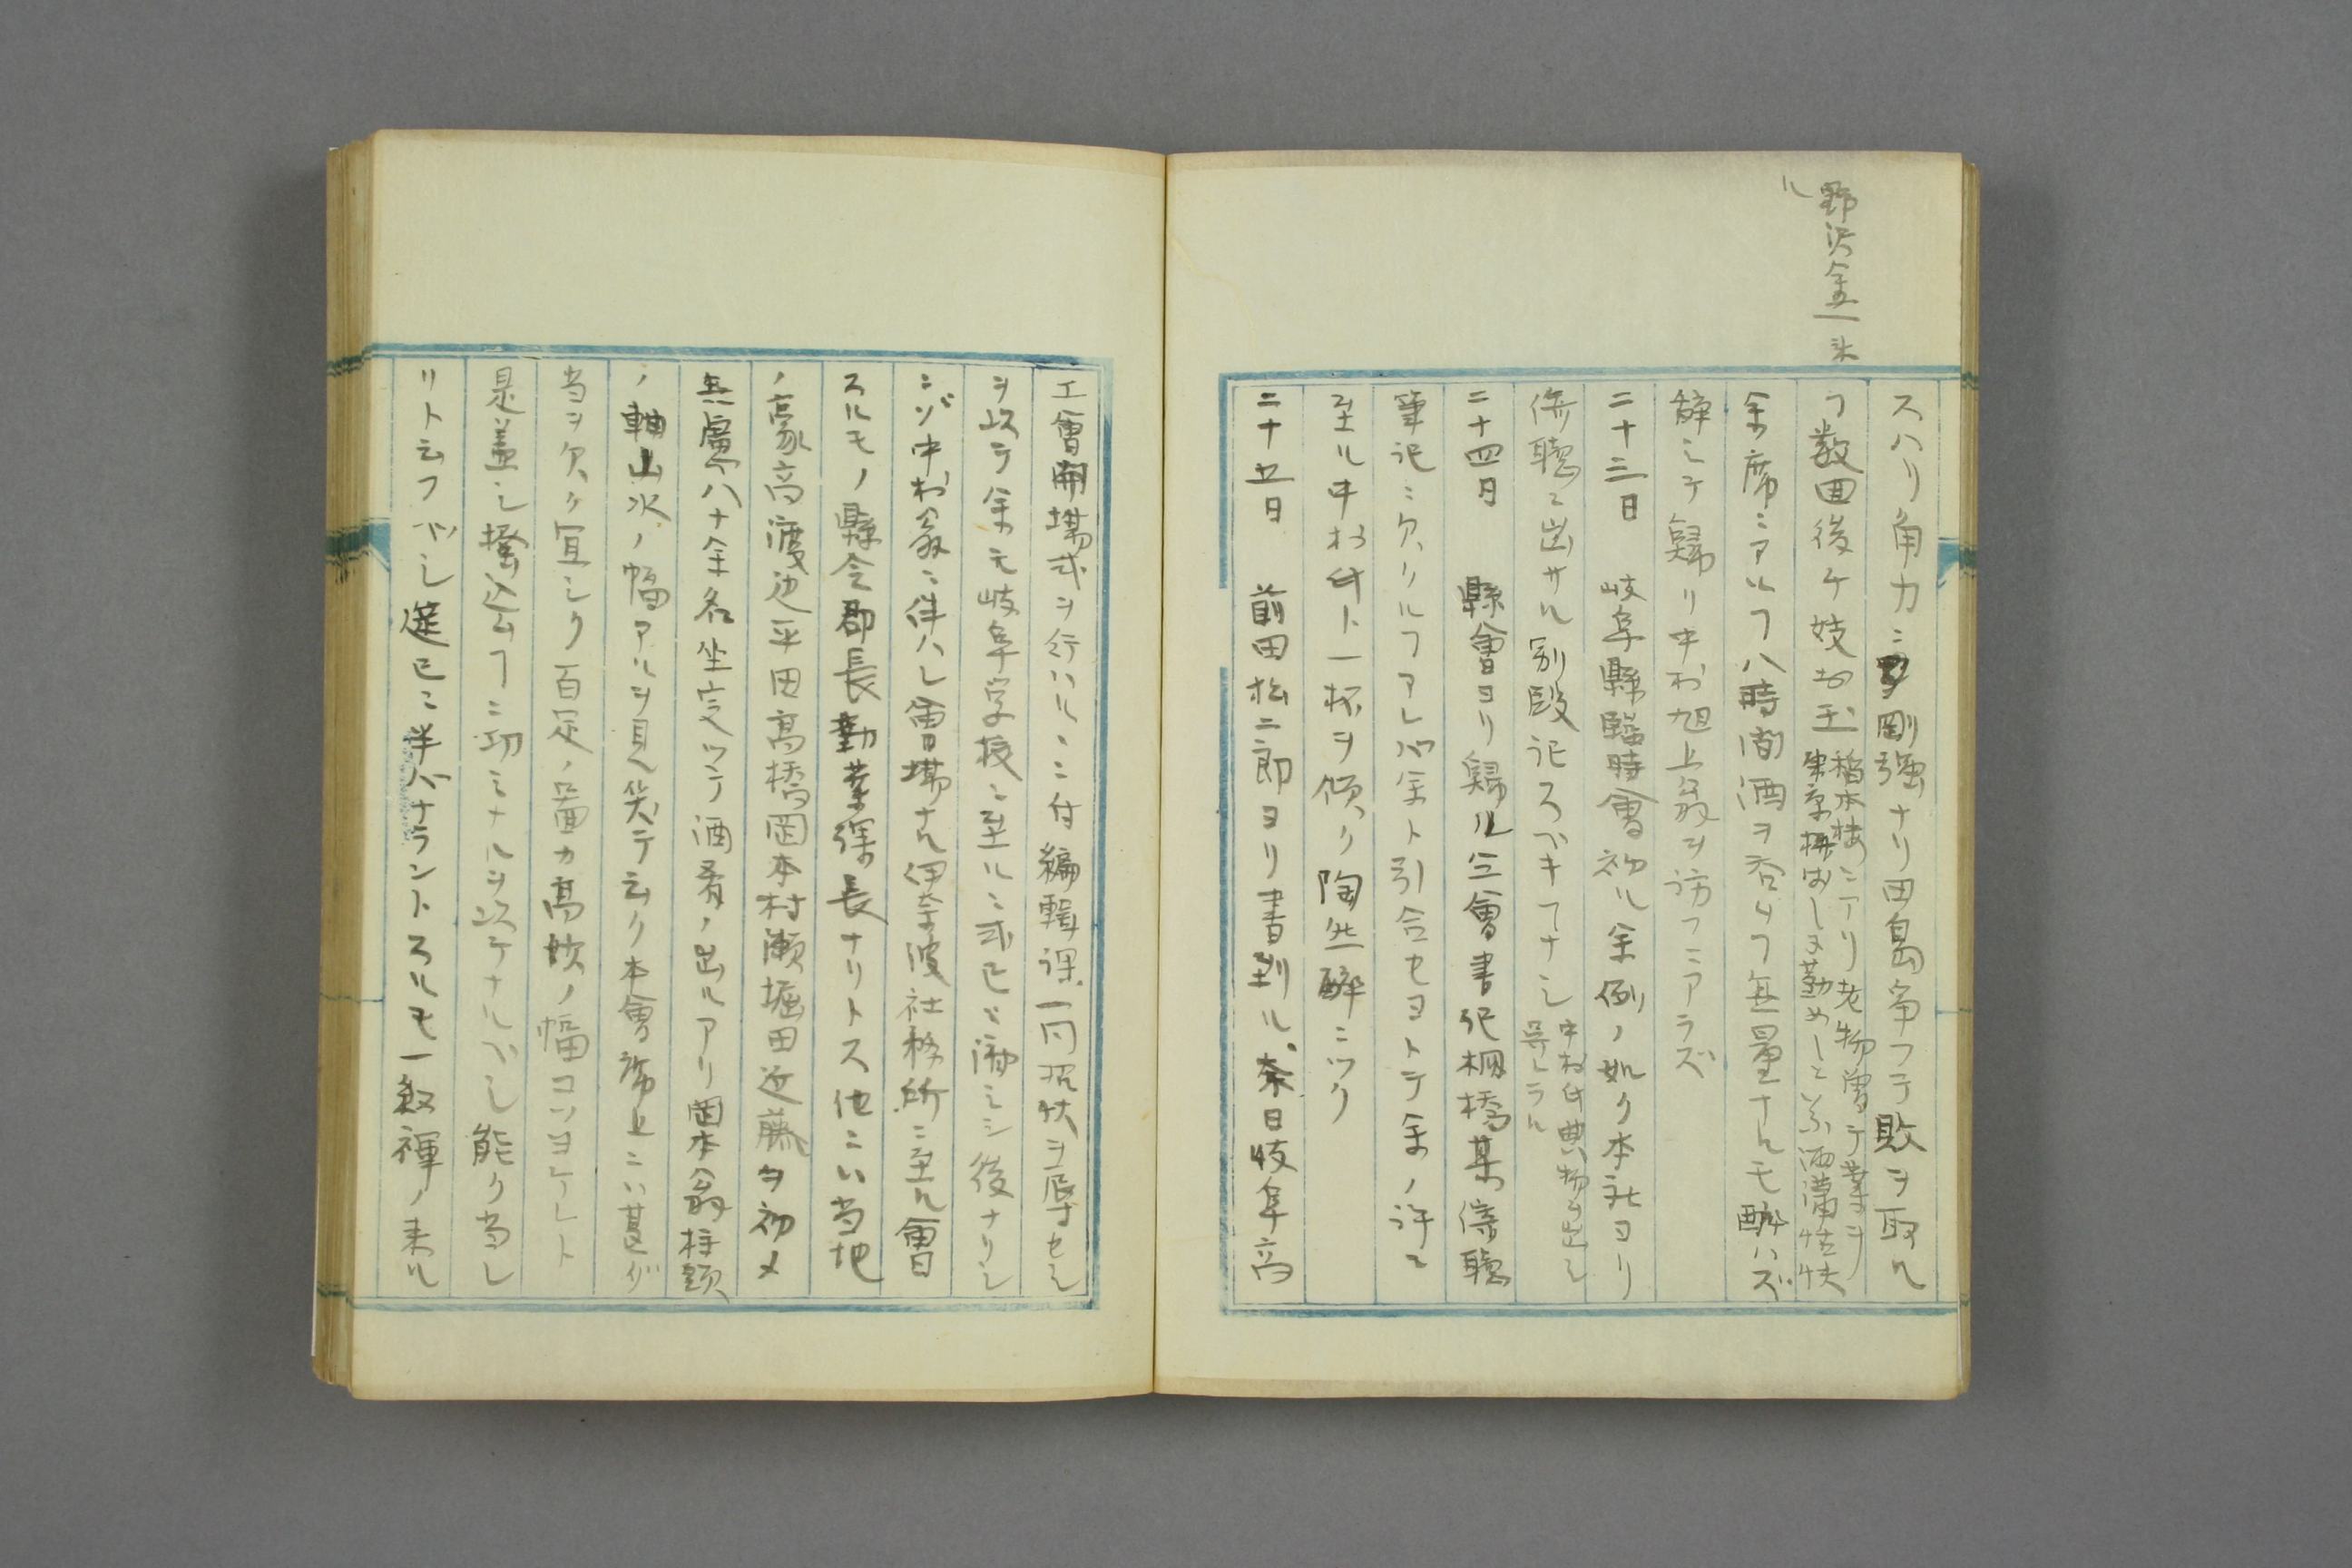 野沢金一来
ル
スハリ角力ニ剛強ナリ田島角フテ敗ヲ取ル
フ数回後ケ妓お玉
稲本楼ニアリ老物曽テ業ヲ
余席ニアルフ八時間酒ヲ呑ムフ無量ナルモ酔ハズ
辞シテ歸リ中村旭上翁ヲ訪フニアラズ
二十三日 岐阜縣臨時會初ル余例ノ如ク本社ヨリ
傍聴ニ出サル別段記スベキフナシ
中村氏典物ヲ出シ
呉レラル
二十四日 縣會ヨリ歸ル仝會書記棚橋某傍聴
筆記ニ欠クルフアレバ余ト引合セヨトテ余ノ許ニ
至ル中村氏ト一杯ヲ傾ク陶然酔ニツク
二十五日 前田松二郎ヨリ書到ル、本日岐阜高
工會開場式ヲ行ハルヽニ付編輯課一同招状ヲ辱セシ
ヲ以テ余元岐阜学校ニ至ルニ式已ニ済ミシ後ナリシ
ニゾ中村翁ニ伴ハレ會場ナル伊奈波社務所ニ至ル會
スルモノ縣令郡長勧業課長ナリトス他ニハ当地
ノ豪高渡辺平田高橋岡本村瀬堀田近藤ヲ初メ
無慮八十余名坐定ツテ酒肴ノ出ルアリ岡本翁柱頭
ノ軸山水ノ幅アルヲ見笑テ云ク本會席上ニハ甚ダ
当ヲ欠ク宜シク百足ノ畵カ高妙ノ幅コソヨケレト
是蓋シ掻込ムフニ功ミナルヲ以テナルベシ能ク当レ
リト云フベシ筵已ニ半バナラントスルモ一紅裙ノ来ル